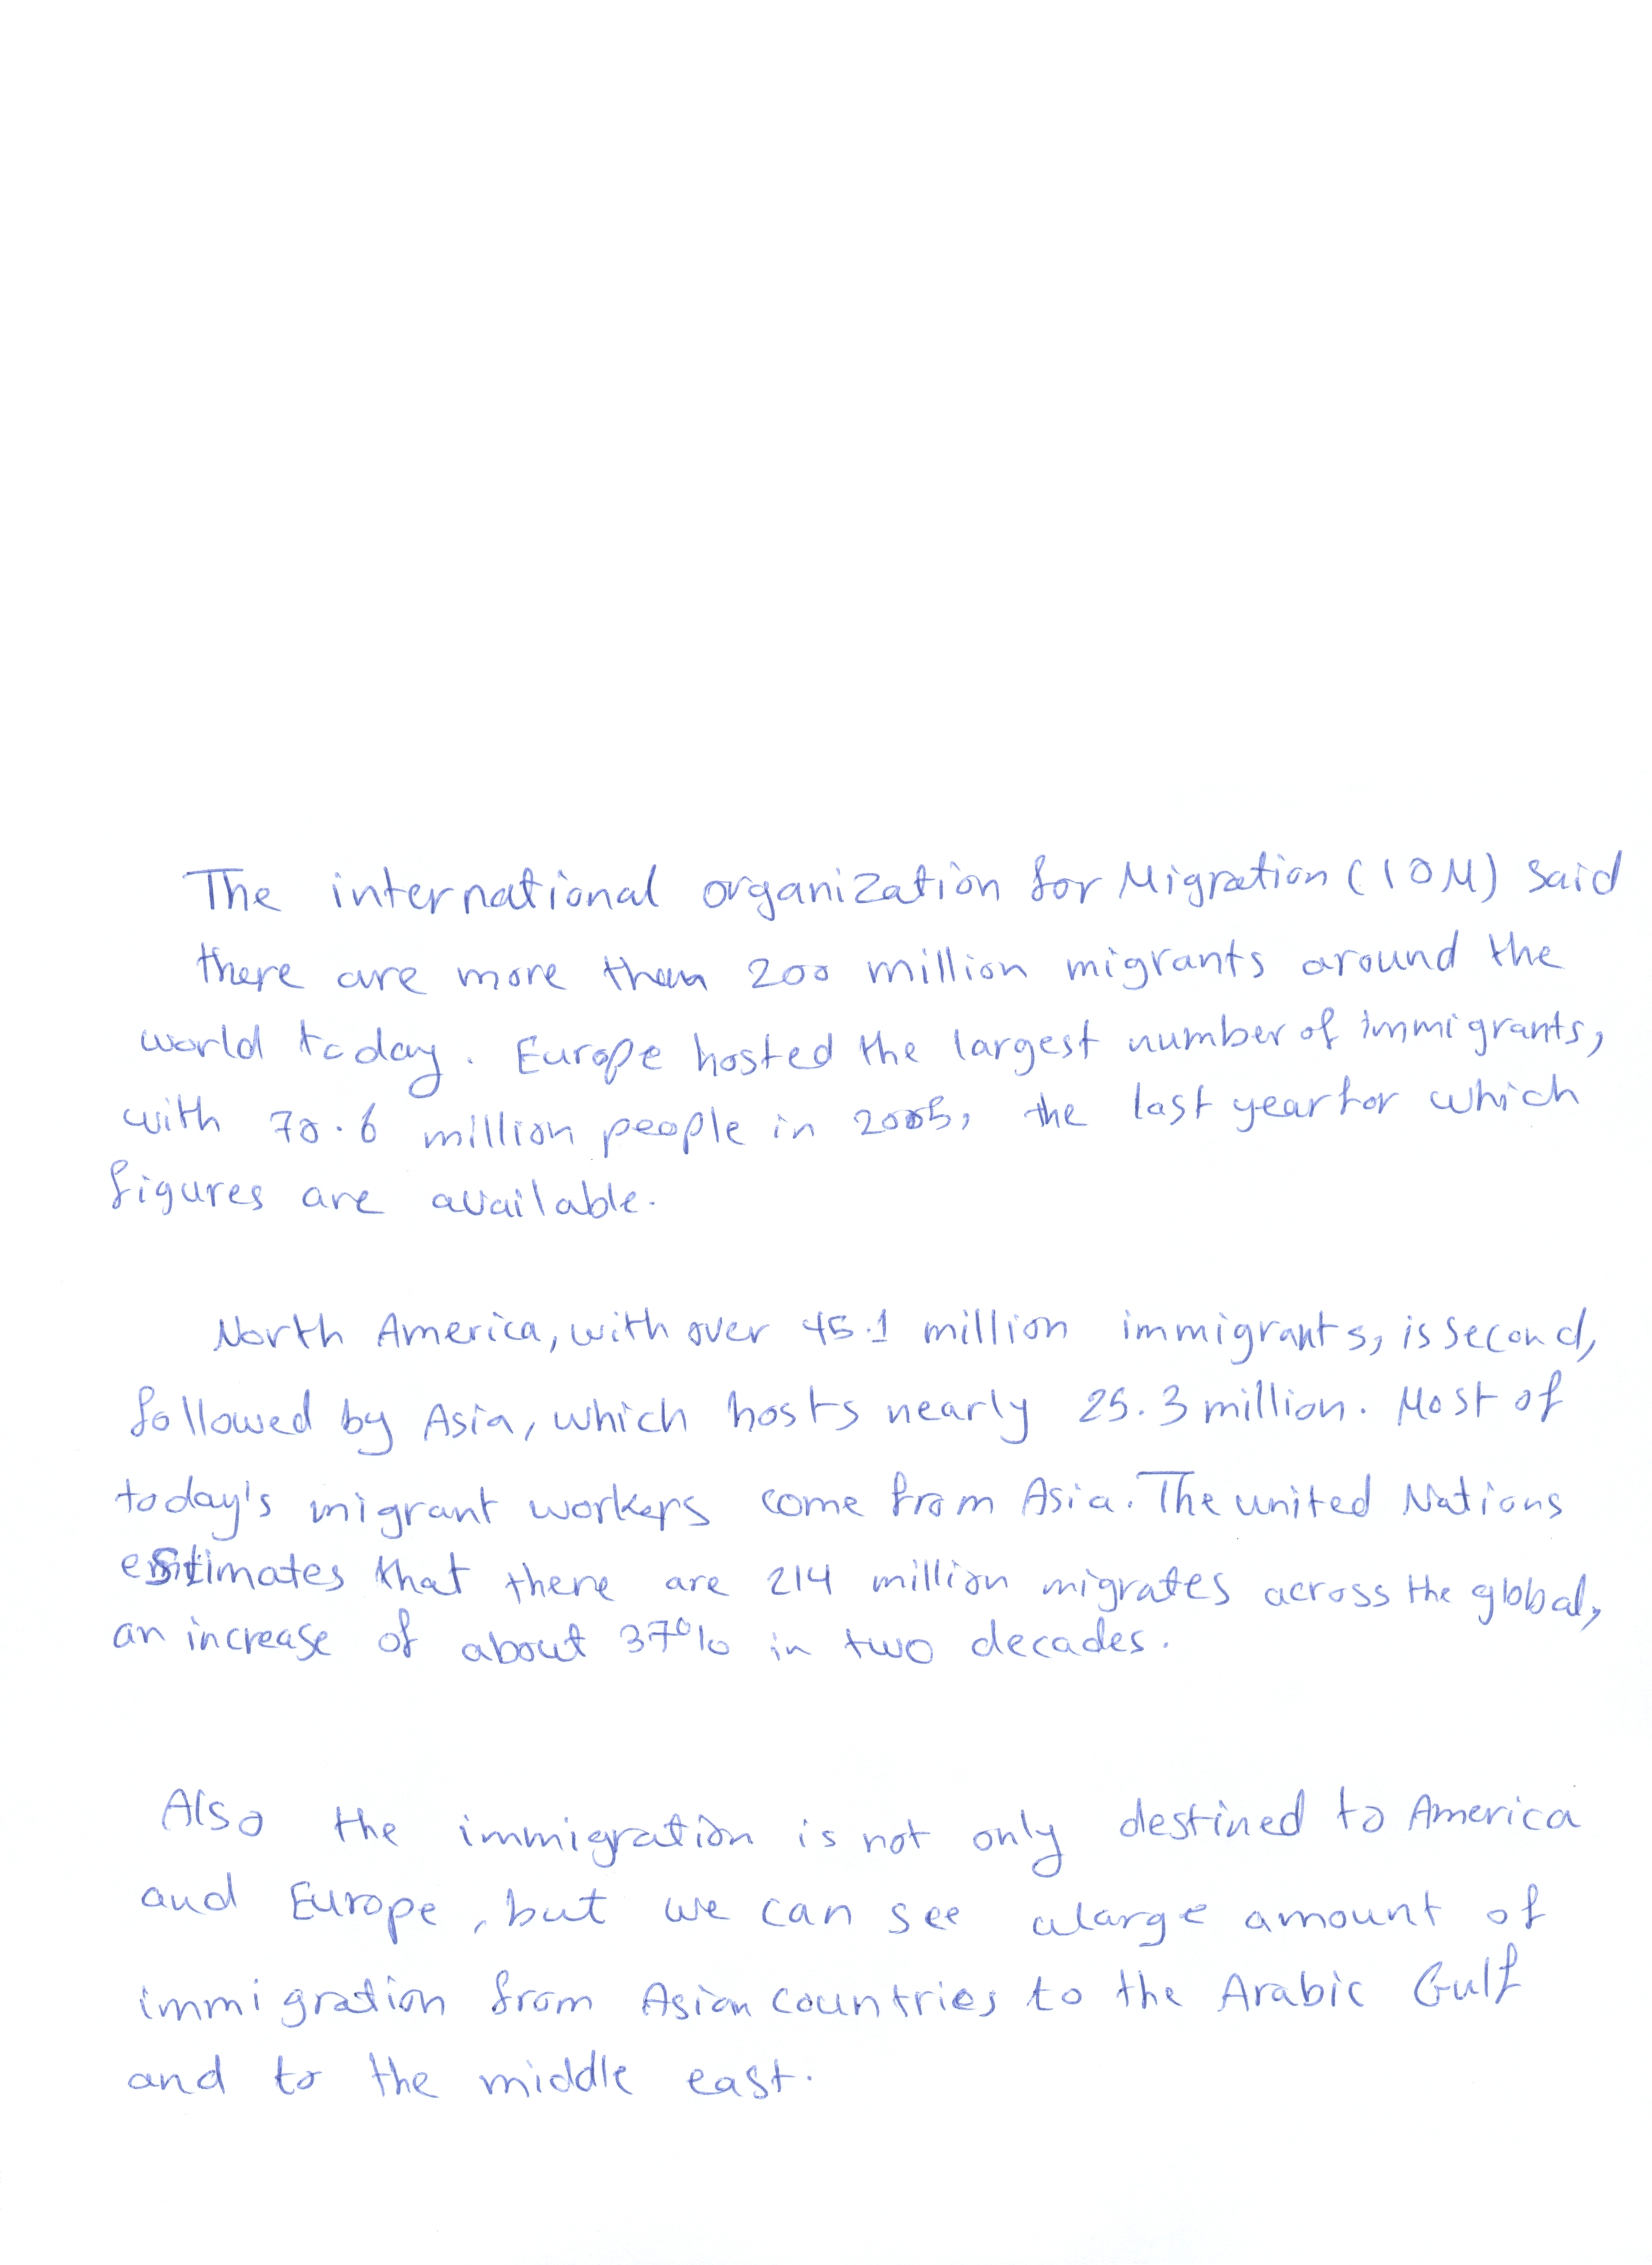 The international organization for Migration (IOM) said
there are more than 200 million migrants around the
world today. Europe hosted the largest number of immigrants,
with 70.6 million people in 2005, the last year for which
figures are available.
North America, with over 45.1 million immigrants, is second,
followed by Asia, which hosts nearly 25.3 million. Most of
today's migrant workers come from Asia. The united Nations
estimates that there are 214 million migrates across the global,
an increase of about 37% in two decades.
Also the immigration is not only destined to America
and Europe, but we can see alarge amount of
immigration from Asian countries to the Arabic Gulf
and to the middle east.